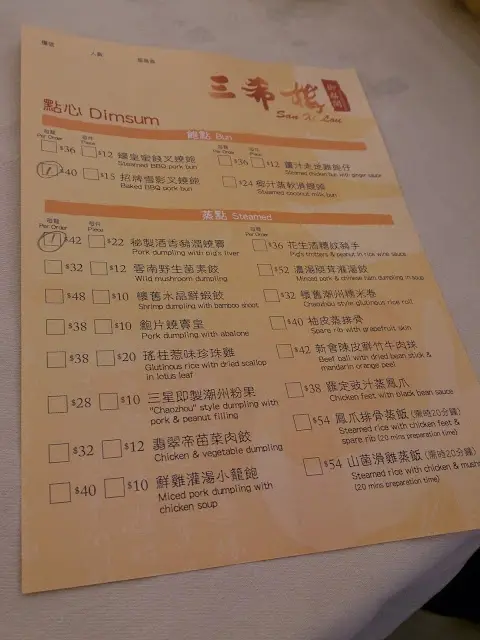 人數
三希樓
San Xi Lou
點心 Dimsum
飽點 Bun
每籠 Per Order 每件 Piece
$36 $12 蜂皇蜜餞叉燒飽
Steamed BBQ pork bun
$40 $15 招牌雪影叉燒飽
Baked BBQ pork bun
$36 $12 薑汁走地雞飽仔
Steamed chicken bun with ginger sauce
$24 椰汁蒸軟滑饅頭
Steamed coconut milk bun
蒸點 Steamed
每籠 Per Order 每件 Piece
$42 $22 秘製酒香豬潤燒賣
Pork dumpling with pig's liver
$32 $12 雲南野生菌素餃
Wild mushroom dumpling
$48 $10 懷舊水晶鮮蝦餃
Shrimp dumpling with bamboo shoot
$38 $10 鮑片燒賣皇
Pork dumpling with abalone
$38 $20 瑤柱惹味珍珠雞
Glutinous rice with dried scallop
in lotus leaf
$28 $10 三星即製潮州粉果
"Chaozhou" style dumpling with
pork & peanut filling
$32 $12 翡翠帝苗菜肉餃
Chicken & vegetable dumpling
$40 $10 鮮雞灌湯小籠飽
Miced pork dumpling with
chicken soup
$36 花生酒糟紋豬手
Pig's trotters & peanut in rice wine sauce
$52 濃湯脆茸灌湯餃
Minced pork & chinese ham dumpling in soup
$32 懷舊潮州糯米卷
Chaozhou style glutinous rice roll
$40 柚皮蒸排骨
Spare rib with grapefruit skin
$42 新會陳皮鮮竹牛肉球
Beef ball with dried bean stick &
mandarin orange peel
$38 雞定豉汁蒸鳳爪
Chicken feet with black bean sauce
$54 鳳爪排骨蒸飯 (需時20分鐘)
Steamed rice with chicken feet &
spare rib (20 mins preparation time)
$54 山菌滑雞蒸飯 (需時20分鐘)
Steamed rice with chicken & mush
(20 mins preparation time)